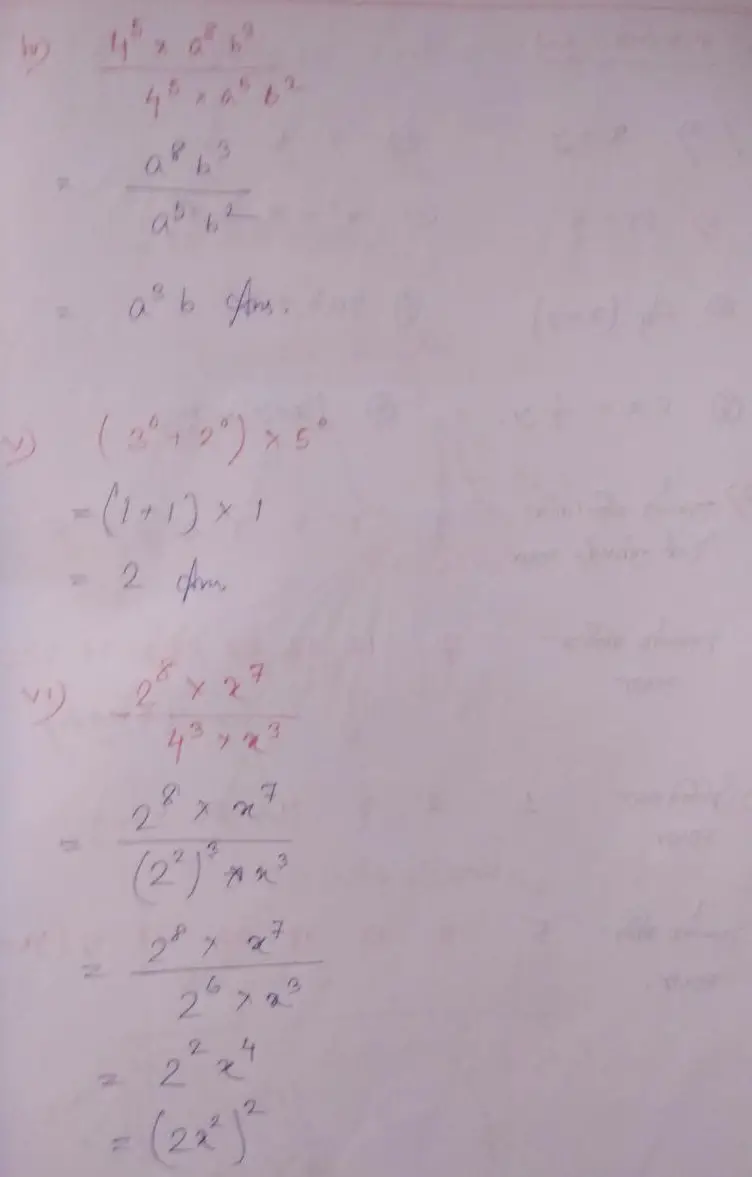 iv) 4⁵ × a⁸ b³
4⁵ × a⁵ b²
= a⁸ b³
a⁵ b²
= a³ b Ans.
v) (3⁰ + 2⁰) × 5⁰
= (1 + 1) × 1
= 2 Ans
vi) 2⁸ × x⁷
4³ × x³
= 2⁸ × x⁷
(2²)³ × x³
= 2⁸ × x⁷
2⁶ × x³
= 2² x⁴
= (2x²)²